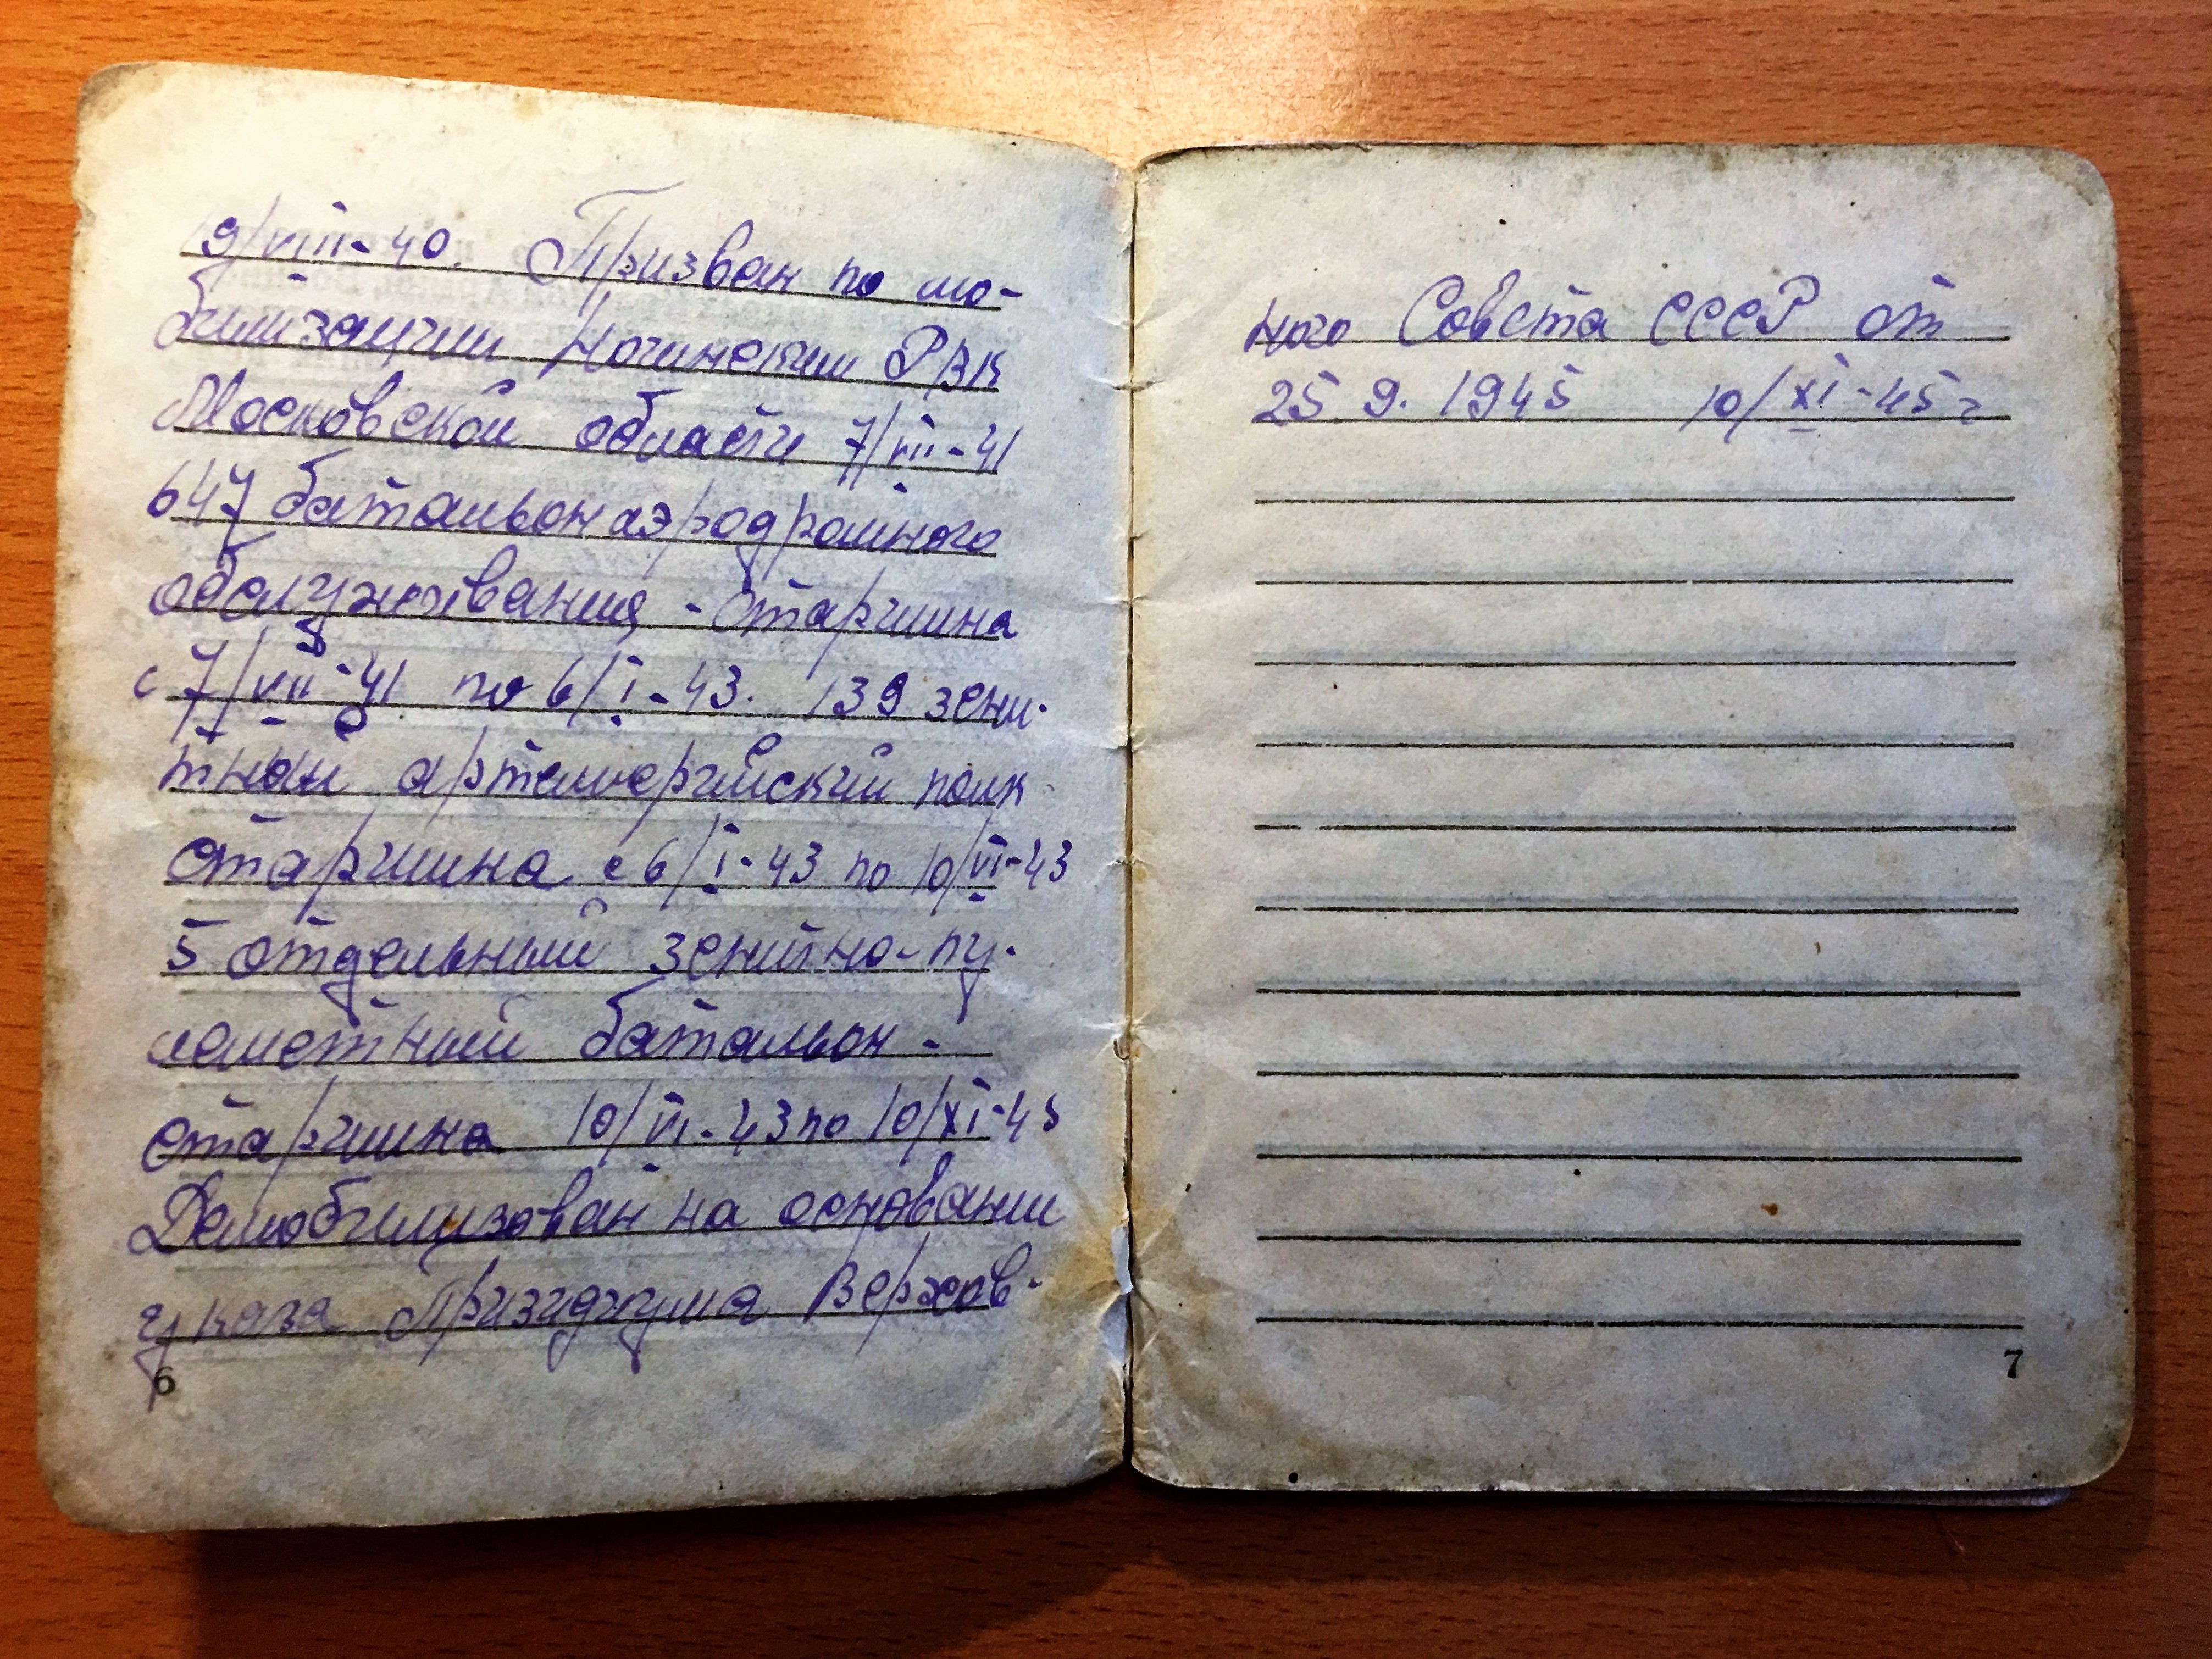 19/VIII-40. Призван по мо-
билизации Ногинским РВК
Московской области 7/VII-41
647 батальон аэродромного
обслуживания - старшина
с 7/VII-41 по 6/I-43. 139 зени-
тный артелерийский полк
старшина с 6/I-43 по 10/VI-43
5 отдельный зенитно-пу-
леметный батальон -
старшина 10/VI-43 по 10/XI-45
Демобилизован на основании
указа Призидиума Верхов-
6
ного Совета СССР от
25 9. 1945 10/XI-45 г
7